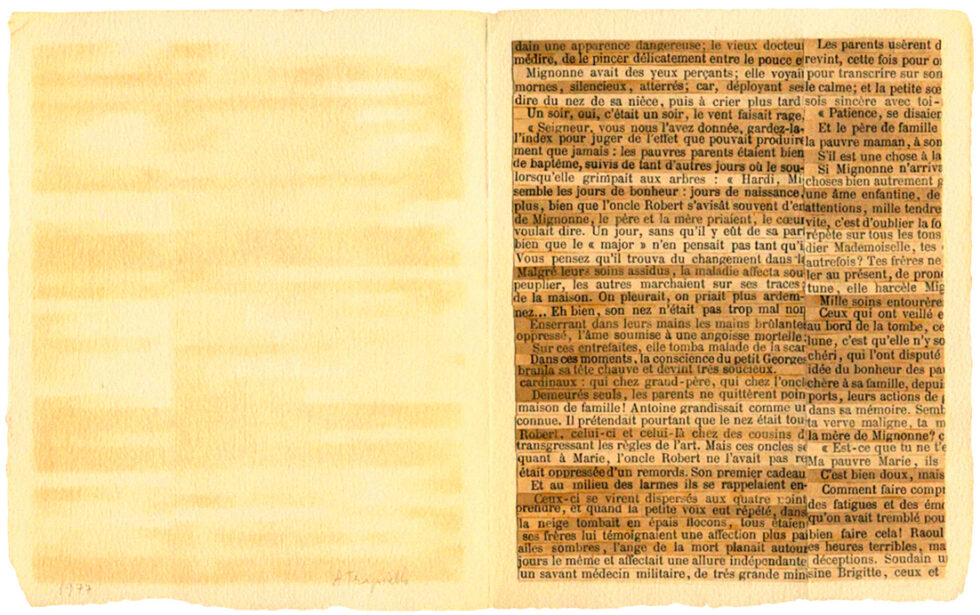 dain une apparence dangereuse; le vieux docteur
médire, de le pincer délicatement entre le pouce e
Mignonne avait des yeux perçants; elle voyai
mornes, silencieux, atterrés; car, déployant se
dire du nez de sa nièce, puis à crier plus tard
Un soir, oui, c'était un soir, le vent faisait rage,
« Seigneur, vous nous l'avez donnée, gardez-la-
l'index pour juger de l'effet que pouvait produire
ment que jamais : les pauvres parents étaient bien
de baptême, suivis de tant d'autres jours où le sou-
lorsqu'elle grimpait aux arbres : « Hardi, Mi
semble les jours de bonheur : jours de naissance,
plus, bien que l'oncle Robert s'avisât souvent d'en
de Mignonne, le père et la mère priaient, le cœur
voulait dire. Un jour, sans qu'il y eût de sa par
bien que le « major » n'en pensait pas tant qu'i
Vous pensez qu'il trouva du changement dans l
Malgré leurs soins assidus, la maladie affecta sou
peuplier, les autres marchaient sur ses traces
de la maison. On pleurait, on priait plus ardem-
nez... Eh bien, son nez n'était pas trop mal non
Enserrant dans leurs mains les mains brûlantes
oppressé, l'âme soumise à une angoisse mortelle
Sur ces entrefaites, elle tomba malade de la scar
Dans ces moments, la conscience du petit Georges
branla sa tête chauve et devint très soucieux.
cardinaux : qui chez grand-père, qui chez l'oncl
Demeurés seuls, les parents ne quittèrent poin
maison de famille! Antoine grandissait comme un
connue. Il prétendait pourtant que le nez était tou
Robert, celui-ci et celui-là chez des cousins d
transgressant les règles de l'art. Mais ces oncles se
quant à Marie, l'oncle Robert ne l'avait pas re
était oppressée d'un remords. Son premier cadeau
Et au milieu des larmes ils se rappelaient en-
Ceux-ci se virent dispersés aux quatre point
prendre, et quand la petite voix eut répété, dans
la neige tombait en épais flocons, tous étaien
ses frères lui témoignaient une affection plus pa
ailes sombres, l'ange de la mort planait autour
jours le même et affectait une allure indépendante
un savant médecin militaire, de très grande min
Les parents usèrent d
revint, cette fois pour o
pour transcrire sur son
le calme; et la petite sœ
sois sincère avec toi-
« Patience, se disaien
Et le père de famille
la pauvre maman, à son
S'il est une chose à la
Si Mignonne n'arriva
choses bien autrement g
une âme enfantine, de
attentions, mille tendre
vite, c'est d'oublier la fo
répète sur tous les tons
dier Mademoiselle, tes
autrefois? Tes frères ne
ler au présent, de pron
tune, elle harcèle Mig
Mille soins entourère
Ceux qui ont veillé e
au bord de la tombe, ce
lune, c'est qu'elle n'y so
chéri, qui l'ont disputé
idée du bonheur des pa
chère à sa famille, depui
ports, leurs actions de g
dans sa mémoire. Semb
ta verve maligne, ta m
la mère de Mignonne? c
« Est-ce que tu ne t'e
Ma pauvre Marie, ils
C'est bien doux, mais
Comment faire compr
des fatigues et des émo
qu'on avait tremblé pou
bien faire cela! Raoul
es heures terribles, ma
déceptions. Soudain u
sine Brigitte, ceux et
1977